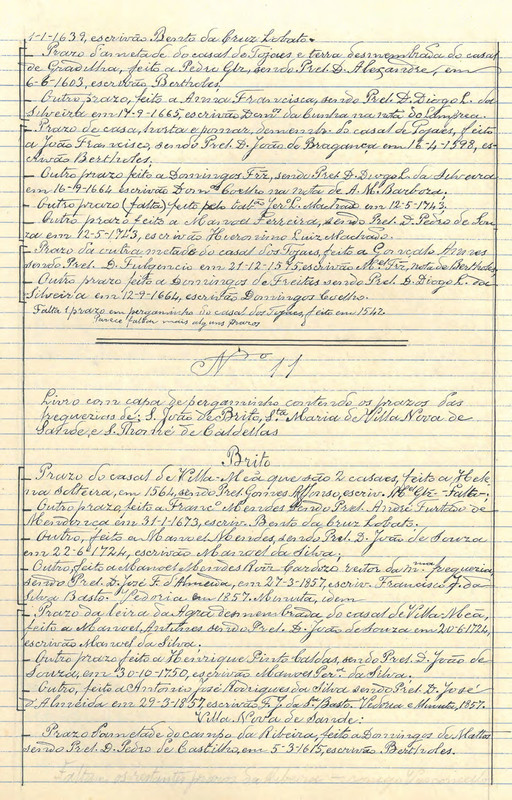 1-1-1639, escrivão Bento da Cruz Lobato.
Prazo d'ametade do casal de Tojaes e terra desmembrada do casal
de Gradilha, feito a Pedro Glz, sendo Prel. D. Alexandre, em
6-6-1603, escrivão Bertholes,
Outro prazo, feito a Anna Francisca, sendo Prel. D. Diogo L. da
Silveira em 17-9-1665, escrivão Domos da Cunha na nota do
Prazo de casa, horta e pomar, desmembr. do casal de Tojaes, feito
a João Francisco, sendo Prel. D. João de Bragança, em 12-4-1598, es-
crivão Bertholes;
Outro prazo feito a Domingos Frz, sendo Prel. D. Diogo L. da Silveira
em 16-9-1664 escrivão Domos Coelho na nota de A. Mel Barboza;
Outro prazo (falta) feito pelo tabam Jero L. Machado em 12-5-1743.
Outro prazo feito a Manoel Ferreira, sendo Prel. D. Pedro de Sou-
za em 12-5-1743, escrivão Hieronimo Luiz Machado.
Prazo da outra metade do casal dos Tojaes, feito a Gonçalo Annes
sendo Prel. D. Fulgencio em 21-12-1575, escrivão Mel Frz, nota de Bertholes,
Outro prazo feito a Domingos de Freitas sendo Prel. D. Diogo L. da
Silveira em 12-9-1664, escrivão Domingos Coelho.
Falta 1 prazo em pergaminho do casal dos Tojaes, feito em 1542
Parece faltar mais alguns prazos
No 11
Livro com capa de pergaminho contendo os prazos das
freguezias de: S. João de Brito, Sta Maria de Villa Nova de
Sande, e S. Thomé de Caldellas
Brito
Prazo do casal de Villa-Meã que são 2 casaes, feito a Hele-
na solteira, em 1564, sendo Prel. Gomes Affonso, escriv. Mel Glz - Falta-;
Outro prazo, feito a Franco Mendes sendo Prel. André Furtado de
Mendonça em 31-1-1673, escriv. Bento da Cruz Lobato.
Outro, feito a Manoel Mendes, sendo Prel. D. João de Souza
em 22-6-1724, escrivão Manoel da Silva;
Outro, feito a Manoel Mendes Roiz Cardozo reitor da mma freguezia,
sendo Prel. D. José d'Almeida, em 27-3-1857, escriv. Francisco J. da
Silva Basto. Vedoria em 1857. Minuta, idem
Prazo da leira da Agra desmembrada do casal de Villa-Meã,
feito a Manoel Antunes sendo Prel. D. João de Souza em 20-6-1724,
escrivão Manoel da Silva;
Outro prazo feito a Henrique Pinto Caldas, sendo Prel. D. João de
Souza, em 30-10-1750, escrivão Manoel Pera da Silva.
Outro, feito a Antonio José Rodrigues da Silva sendo Prel. D. José
d'Almeida em 29-3-1857, escrivão F. J. da Sa Basto. Vedoria e Minuta, 1857.
Villa Nova de Sande:
Prazo d'ametade do campo da Ribeira, feito a Domingos de Mattos
sendo Prel. D. Pedro de Castilho, em 5-3-1615, escrivão Bertholes.
Faltam os restantes prazos da Ribeira